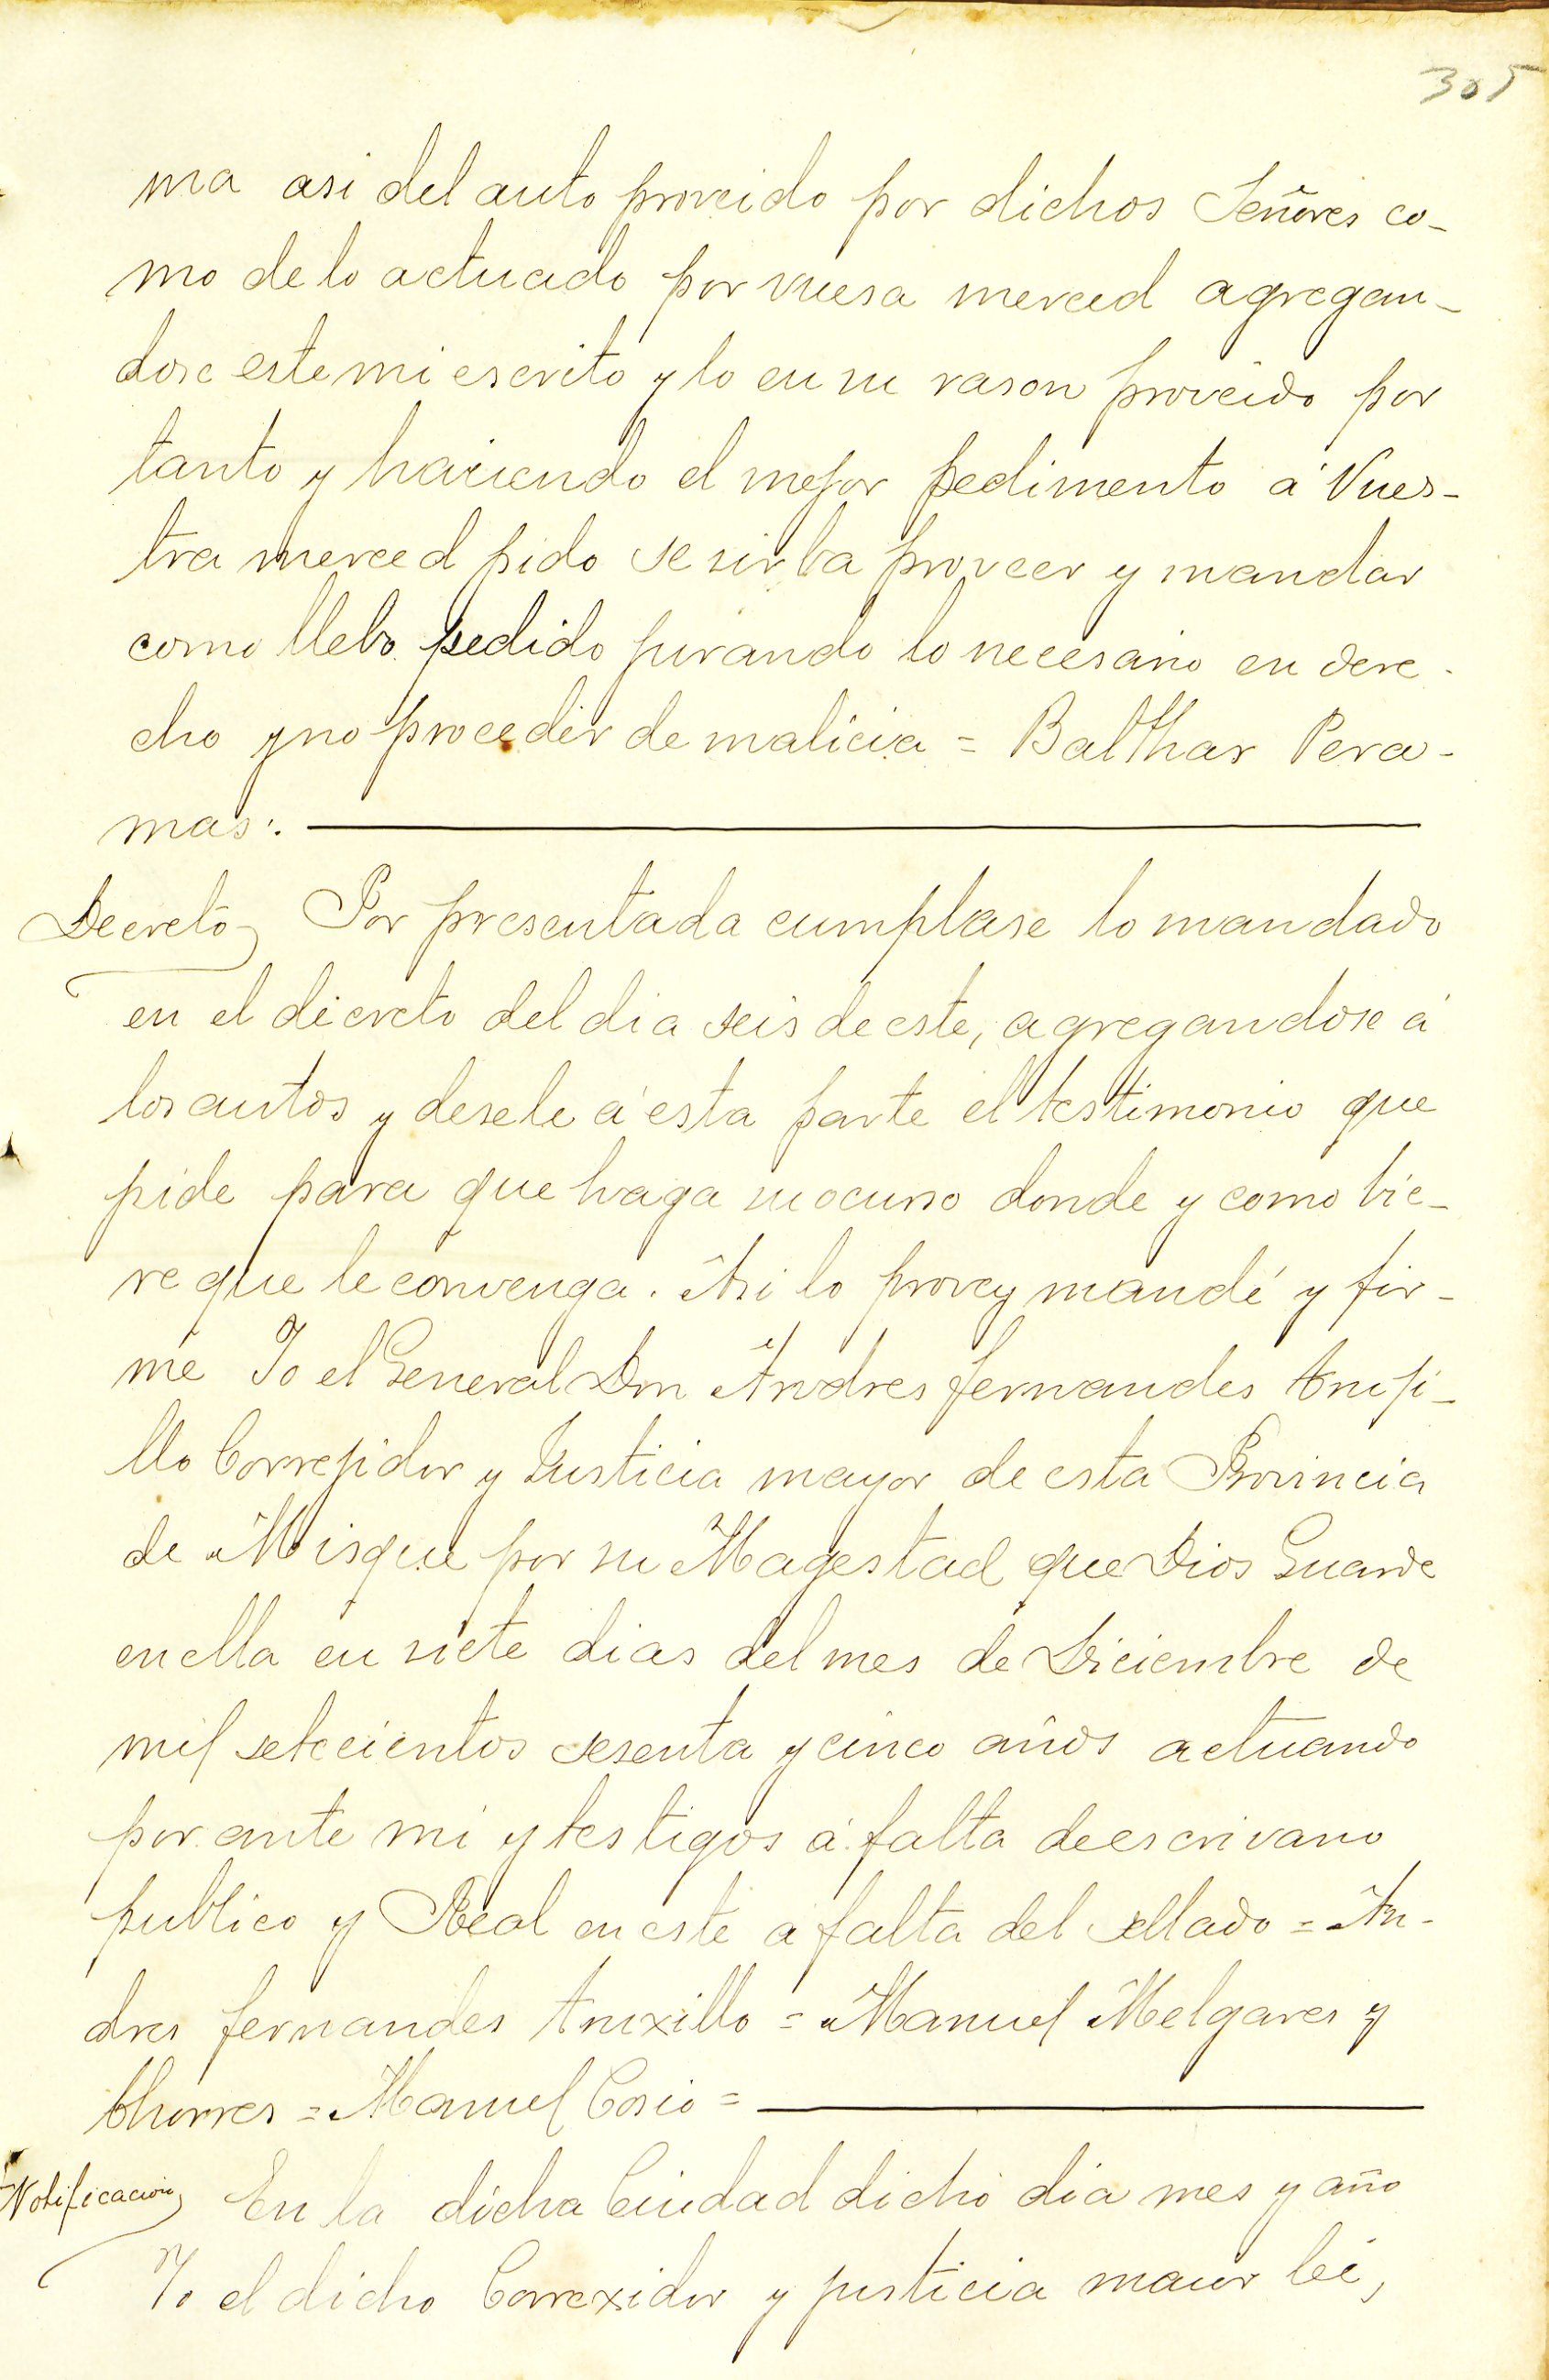 305
ma asi del auto proveido por dichos Señores co-
mo de lo actuado por vuesa merced agregan-
dose este mi escrito y lo en su rason proveido por
tanto y haciendo el mejor pedimento á Vues-
tra merced pido se sirba proveer y mandar
como llebo pedido jurando lo necesario en dere-
cho y no proceder de malicia = Balthar Pera-
mas:
Decreto Por presentada cumplase lo mandado
en el decreto del dia seis de este, agregandose á
los autos y desele á esta parte el testimonio que
pide para que haga su ocurso donde y como bie-
re que le convenga. Asi lo provey mandé y fir-
mé Yo el General Dn Andres fernandes truji-
llo Correjidor y Justicia mayor de esta Provincia
de Misque por su Magestad que Dios Guarde
en ella en siete dias del mes de Diciembre de
mil setecientos sesenta y cinco años actuando
por ante mi y testigos á falta de escrivano
publico y Real en este a falta del sellado = An-
dres fernandes truxillo = Manuel Melgares y
thorres = Manuel Cosio =
Notificacion En la dicha Ciudad dicho dia mes y año
Yo el dicho Correxidor y justicia maior lei,